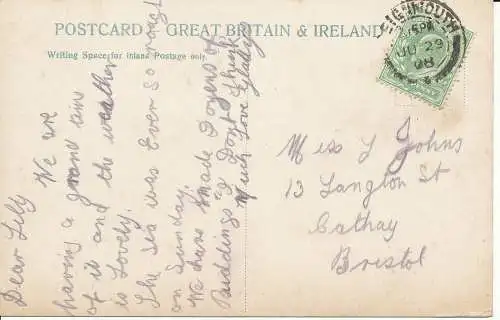 POSTCARD GREAT BRITAIN & IRELAND
Writing Space for Inland Postage only.
IGNMOUTH
JU 29
08
Dear Lily
We are
having a grand time
of it and the weather
is Lovely.
The sea was Ever so rough
on Sunday.
We have made Dozens of
Puddings I Dont think
Much Love Gladys
Miss L Johns
13 Langton St
Cathay
Bristol